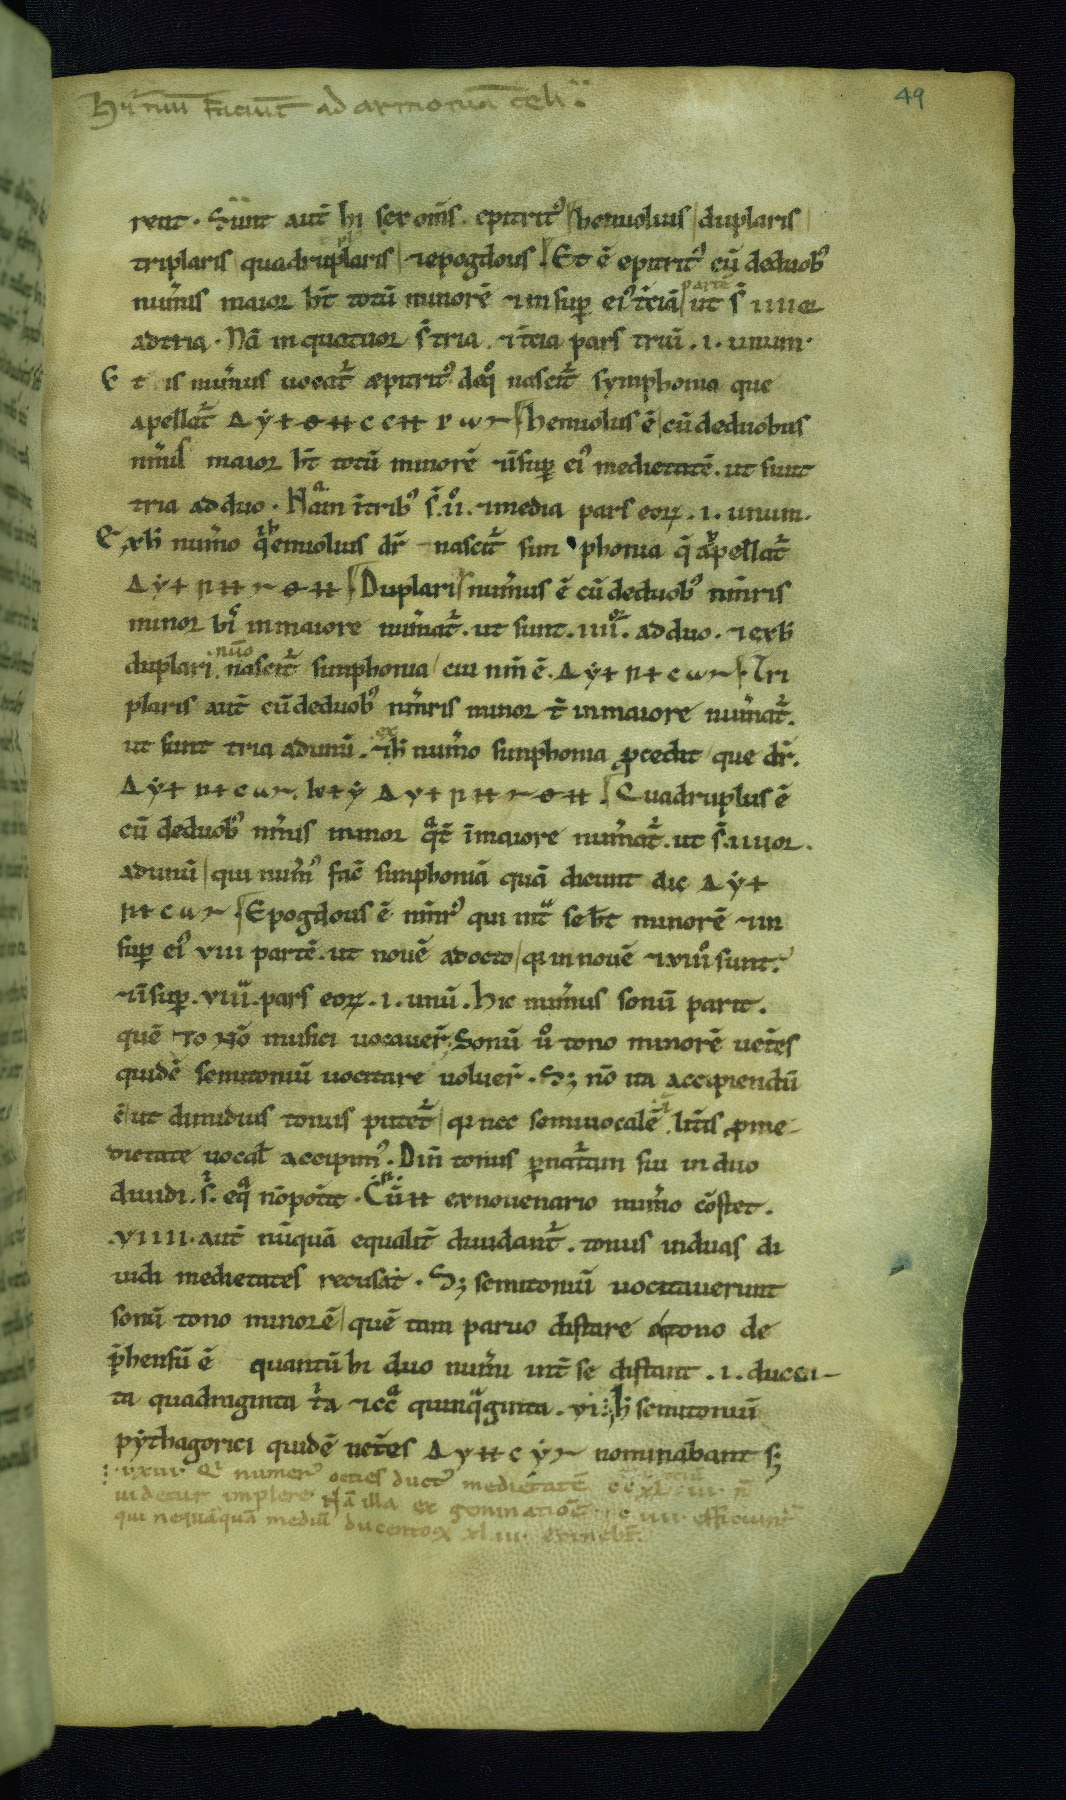 Hii nu̅i faciu̅t ad armonia̅ celi
49
rent. Sunt aut̅ hi sex om̅s. epitrit9 hemiolius duplaris
triplaris quadruplaris ⁊epogdous. Et e̅ epitrit9 cu̅ deduob9
num̅is maior h̅t totu̅ minore̅ ⁊insup ei9 t̅cia̅ parte̅ ut s̅ iiiior
adtria. Na̅ inquatuor s̅ tria ⁊t̅cia pars triu̅ .i. unum.
Et is num̅us uocat̅ æpitrit9 deq̊ nascit̅ symphonia que
apellat̅ Δ ẏ + ⲑ H C C H P ω ⲛ hemiolus e̅ cu̅ deduobus
nm̅is maior h̅t totu̅ minore̅ ⁊i̅sup ei9 medietate̅. ut sunt
tria adduo. Nam i̅trib9 s̅.ii. ⁊media pars eoꝝ .i. unum.
Exh̅ num̅o q̅ hemiolius dr̅ nascit̅ sim phonia q̅ appellat̅
Δ ẏ + Duplaris num̅us e̅ cu̅ deduob9 nm̅ris
minor bi̅ inmaiore num̅at̅. ut sunt .iiii. adduo. ⁊exh̅
duplari nu̅o nascit̅ simphonia cui nm̅ e̅. Δ ẏ + Tri
plaris aut̅ cu̅ deduob9 nm̅ris minor t̅ inmaiore num̅at̅.
ut sunt tria adunu̅. ⁊ex h̅ num̅o simphonia p̱cedit que dr̅.
Quadruplus e̅
cu̅ deduob9 nm̅is minor q̅t̅ i̅maiore num̅at̅. ut s̅ .iiiior.
adunu̅ qui num̅9 fac̅ simphonia̅ qua̅ dicunt dic Δ ẏ +
Epogdous e̅ nm̅r9 qui int̅ se h̅t minore̅ ⁊in
sup ei9 viii parte̅. ut noue̅ adocto qi innoue̅ ⁊viii sunt.
⁊i̅sup. viii. pars eoꝝ .i. unu̅. hic num̅us sonu̅ parit.
que̅ Tono̅ musici uocauer̅. Sonu̅ u̅o tono minore̅ uet̅es
quide̅ semitoniu̅ uocitare uoluer̅. Sꝫ no̅ ita accipiendu̅
e̅ ut dimidius tonus putet̅ qi nec semiuocale̅ lit̅is p̱ me-
dietate uocal̅ accipim9. Din̅ tonus p̱nat̅am sui in duo
diuidi .s̅. eq̅ no̅pot̅it. Cu̅ e̅n exnouenario num̅o co̅stet.
.viiii. aut̅ nu̅qua̅ equalit̅ diuidant̅. tonus induas di
uidi medietates recusat. Sꝫ semitoniu̅ uocitauerunt
sonu̅ tono minore̅ que̅ tam paruo distare atono de
p̅hensu̅ e̅ quantu̅ hi duo num̅i int̅ se distant .i. ducen-
ta quadraginta t̅a ⁊cc̅ quinq̅ginta. vi. h̅ semitoniu̅
pẏthagorici quide̅ uet̅es Δ nominabant sꝫ
numer9 octies duct9 medietate̅
uidetur implere Na̅ illa ex geminatio̅e efficiunt̅
qui nequaqua̅ mediu̅ ducentoꝝ xl iii